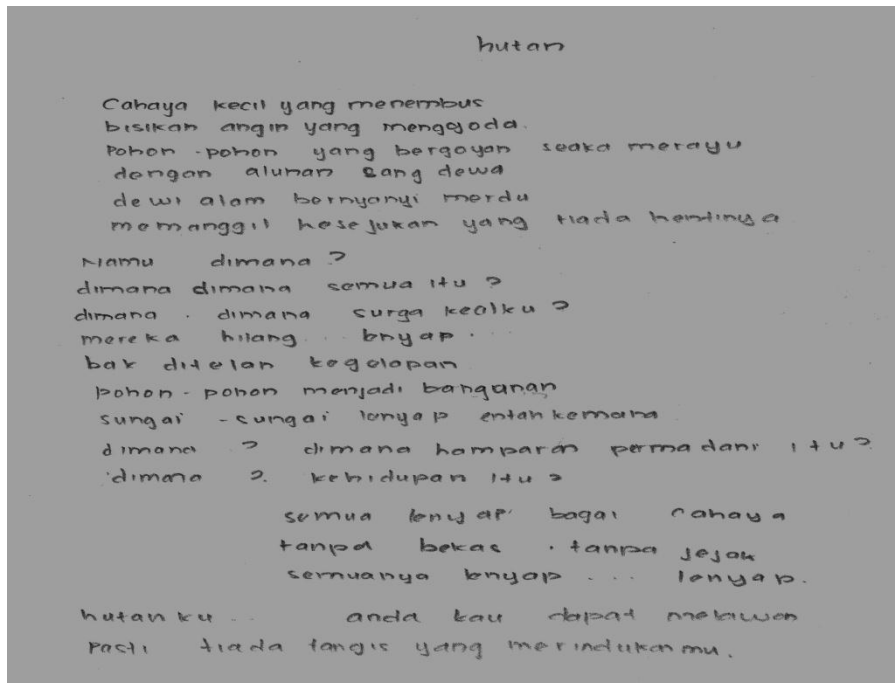 hutan
Cahaya kecil yang menembus
bisikan angin yang menggoda.
Pohon-pohon yang bergoyan seaka merayu
dengan alunan sang dewa
dewi alam bernyanyi merdu
memanggil kesejukan yang tiada hentinya
Namu dimana?
dimana dimana semua itu?
dimana. dimana surga kecilku?
mereka hilang... lenyap...
bak ditelan kegelapan
pohon-pohon menjadi bangunan
sungai-sungai lenyap entah kemana
dimana? dimana hamparan permadani itu?
dimana?. kehidupan itu?
semua lenyap bagai cahaya
tanpa bekas. tanpa jejak
semuanya lenyap... lenyap.
hutanku... anda kau dapat melawan
Pasti tiada tangis yang merindukanmu.